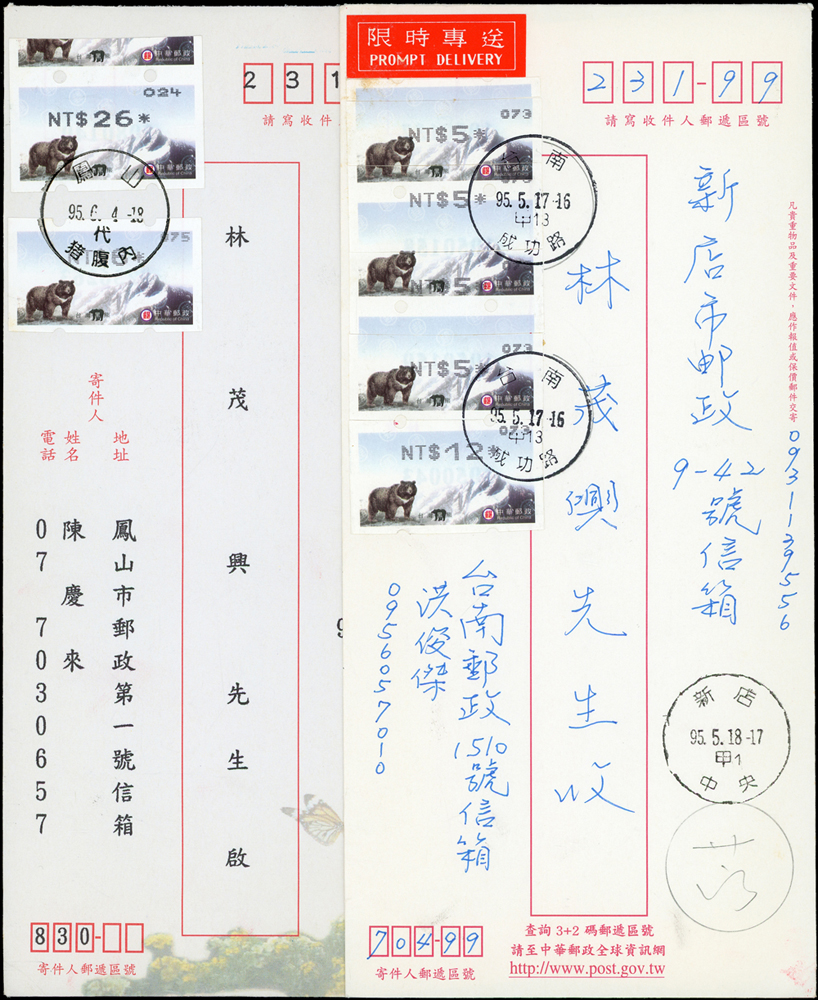 中華郵政
Republic of China
024
NT$26*
中華郵政
鳳山
95.6.4-18
代
豬腹內
075
中華郵政
Republic of China
231
請寫收件
林茂興先生啟
寄件人
地址
姓名
電話
鳳山市郵政第一號信箱
陳慶來
07 7030657
830-
寄件人郵遞區號
限時專送
PROMPT DELIVERY
073
NT$5*
中華郵政
NT$5*
中華郵政
NT$5*
073
NT$5*
中華郵政
073
NT$12*
中華郵政
台南
95.5.17-16
甲13
成功路
台南
95.5.17-16
甲13
成功路
231-99
請寫收件人郵遞區號
凡貴重物品及重要文件,應作報值或保價郵件交寄
0931139556
新店市郵政
9-42號信箱
林茂興先生收
台南郵政1510號信箱
洪俊傑
0956057010
新店
95.5.18-17
甲1
中央
704-99
寄件人郵遞區號
查詢 3+2 碼郵遞區號
請至中華郵政全球資訊網
http://www.post.gov.tw